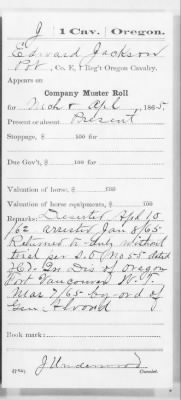 J 1 Cav. Oregon.
Edward Jackson
Pvt, Co. E, 1 Reg't Oregon Cavalry.
Appears on
Company Muster Roll
for Mch & Apl, 1865
Present or absent Present
Stoppage, $ 100 for
Due Gov't, $ 100 for
Valuation of horse, $ 100
Valuation of horse equipments, $ 100
Remarks: Deserted Apl 15
/62 arrested Jan 8/65
Returned to duty without
trial per S.O. No 55 dated
Hd Qrs Dis of Oregon
Fort Vancouver W.T.
Mar 7/65 by ord of
Gen Alvord
Book mark:
J Underwood
(724) Copyist.